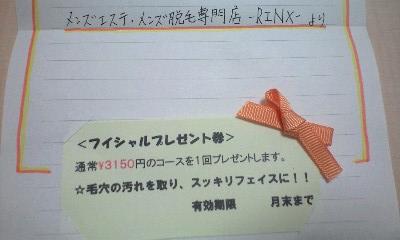 メンズエステ・メンズ脱毛専門店 -RINX- より
<フイシャルプレゼント券>
通常¥3150円のコースを1回プレゼントします。
☆毛穴の汚れを取り、スッキリフェイスに！！
有効期限　　月末まで